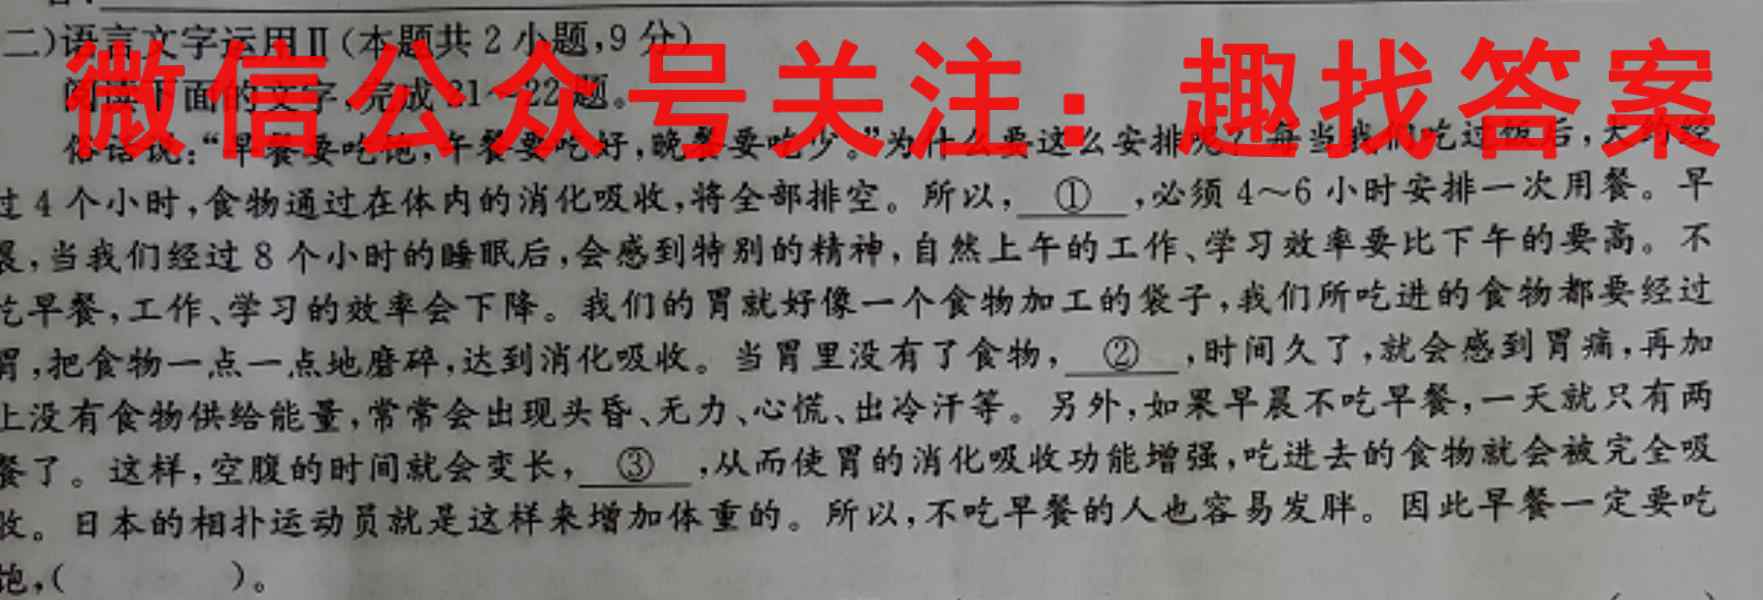 二)语言文字运用Ⅱ(本题共2小题,9分)
微信公众号关注：趣找答案
阅读下面的文字,完成21～22题。
俗话说:“早餐要吃饱,午餐要吃好,晚餐要吃少。”为什么要这么安排呢?每当我们吃过饭后,大约经
过4个小时,食物通过在体内的消化吸收,将全部排空。所以,①,必须4～6小时安排一次用餐。早
晨,当我们经过8个小时的睡眠后,会感到特别的精神,自然上午的工作、学习效率要比下午的要高。不
吃早餐,工作、学习的效率会下降。我们的胃就好像一个食物加工的袋子,我们所吃进的食物都要经过
胃,把食物一点一点地磨碎,达到消化吸收。当胃里没有了食物,②,时间久了,就会感到胃痛,再加
上没有食物供给能量,常常会出现头昏、无力、心慌、出冷汗等。另外,如果早晨不吃早餐,一天就只有两
餐了。这样,空腹的时间就会变长,③,从而使胃的消化吸收功能增强,吃进去的食物就会被完全吸
收。日本的相扑运动员就是这样来增加体重的。所以,不吃早餐的人也容易发胖。因此早餐一定要吃
饱,( )。